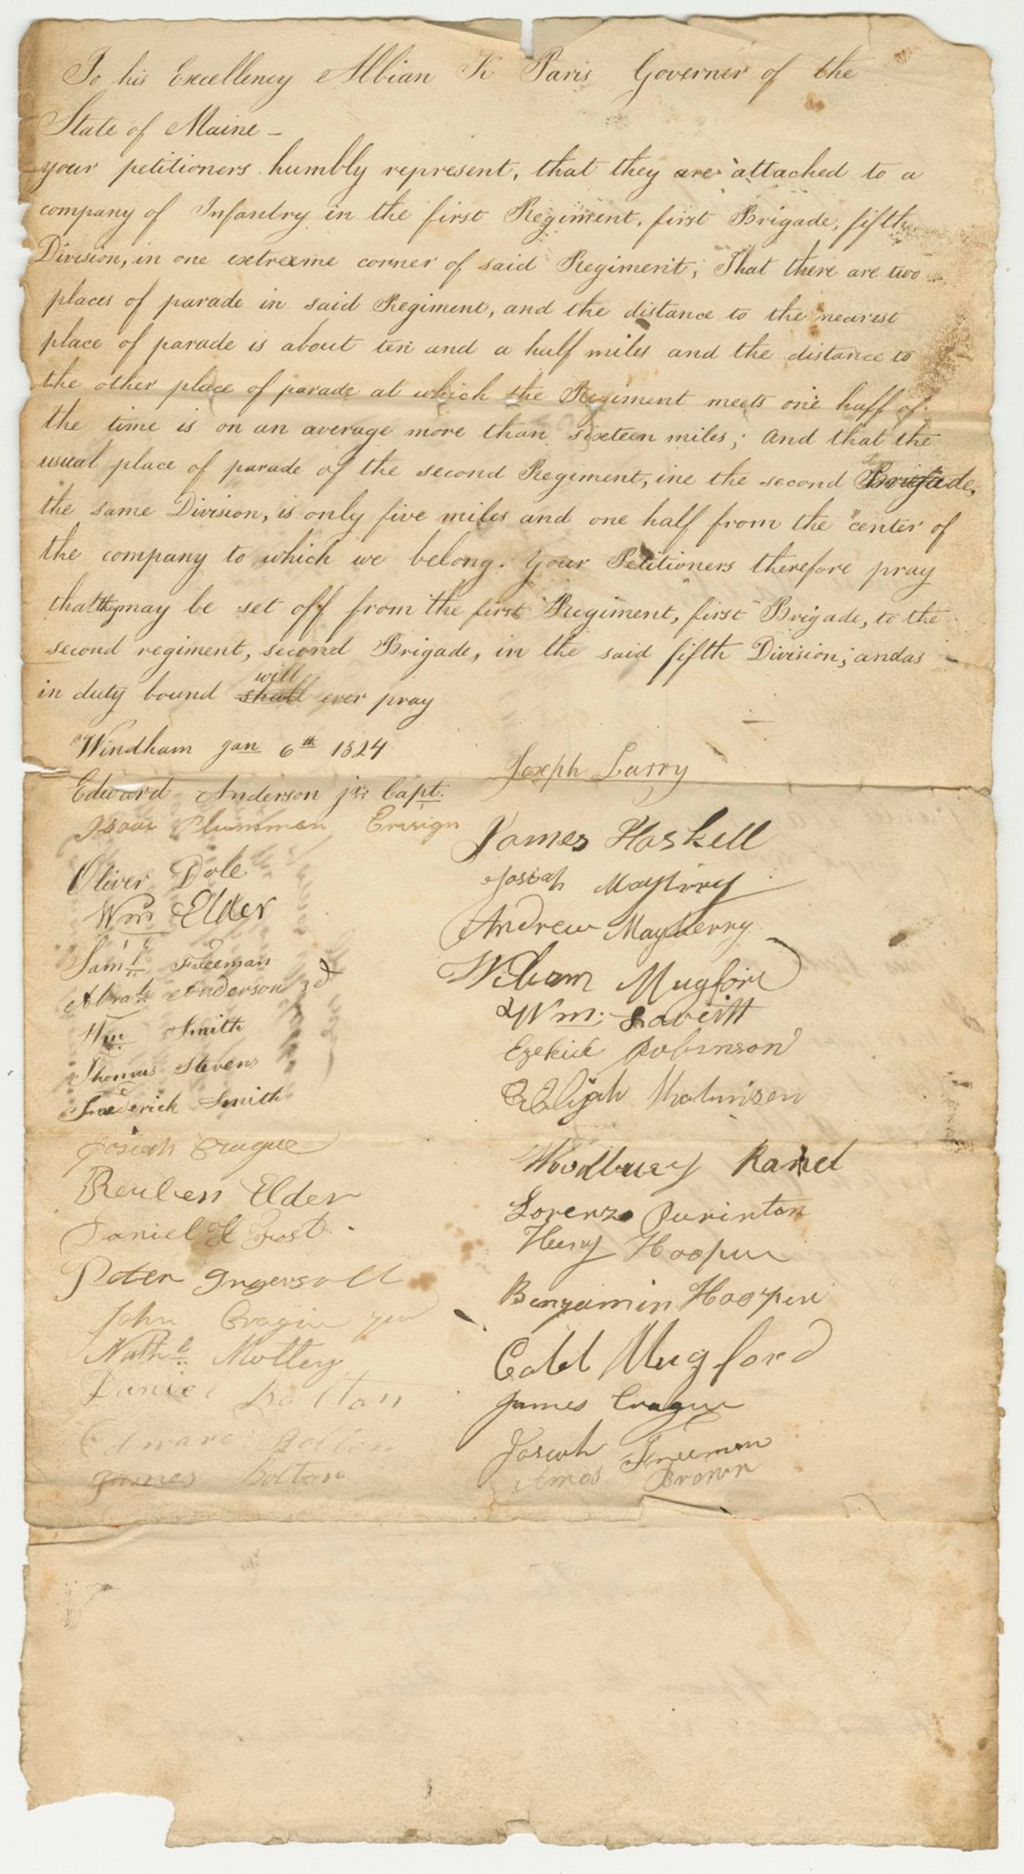 To his Excellency Albian K Paris Governer of the
State of Maine –
your petitioners humbly represent, that they are attached to a
company of Infantry in the first Regiment, first Brigade, fifth
Division, in one extreame corner of said Regiment; That there are two
places of parade in said Regiment, and the distance to the nearest
place of parade is about ten and a half miles and the distance to
the other place of parade at which the Regiment meets one half of
the time is on an average more than sixteen miles; And that the
usual place of parade of the second Regiment, ine the second Brigade,
the same Division, is only five miles and one half from the center of
the company to which we belong. Your Petitioners therefore pray
that they may be set off from the first Regiment, first Brigade, to the
second regiment, second Brigade, in the said fifth Division; and as
in duty bound shall will ever pray
Windham Jan 6th 1824
Edward Anderson jr: Capt.
Isaac Plummer Ensign
Oliver Dole
Wm Elder
Saml Freeman
Abrah Anderson 3d
Wm Smith
Thomas Stevens
Frederick Smith
Josiah Crague
Reuben Elder
Daniel Frost
Peter Ingersoll
John Cragin
Nathl Motley
Daniel Bolton
Edward Bolton
James Bolton
Joseph Larry
James Haskell
Josiah Mayberry
Andrew Mayberry
William Mugford
Wm. Leavitt
Ezekiel Robinson
Elijah
Woodbury Rand
Lorenzo Purinton
Henry Hooper
Benjamin Hooper
Mugford
James Crague
Josiah Freeman
Amos Brown